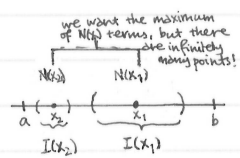 we want the maximum
of N(x) terms, but there
are infinitely
many points!
N(x₂) N(x₁)
a x₂ x₁ b
I(x₂) I(x₁)